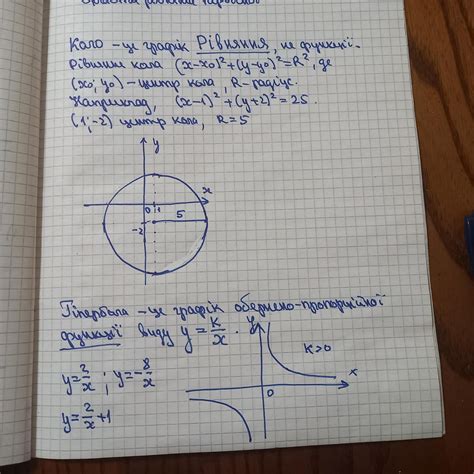 Коло – це графік Рівняння, не функції.
Рівняння кола (x-x₀)²+(y-y₀)²=R², де
(x₀; y₀) – центр кола, R – радіус.
Наприклад, (x-1)²+(y+2)²=25.
(1;-2) центр кола, R=5
y
x
0 1
5
-2
Гіпербола – це графік обернено-пропорційної
функції виду y=k/x.
y
k>0
x
0
y=2/x ; y=-8/x
y=2/x+1